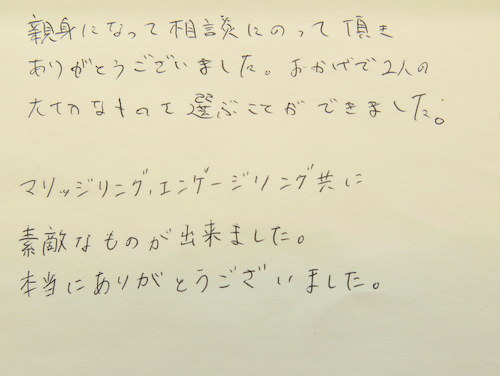 親身になって相談にのって頂き
ありがとうございました。おかげで2人の
大切なものを選ぶことができました。
マリッジリング、エンゲージリング共に
素敵なものが出来ました。
本当にありがとうございました。